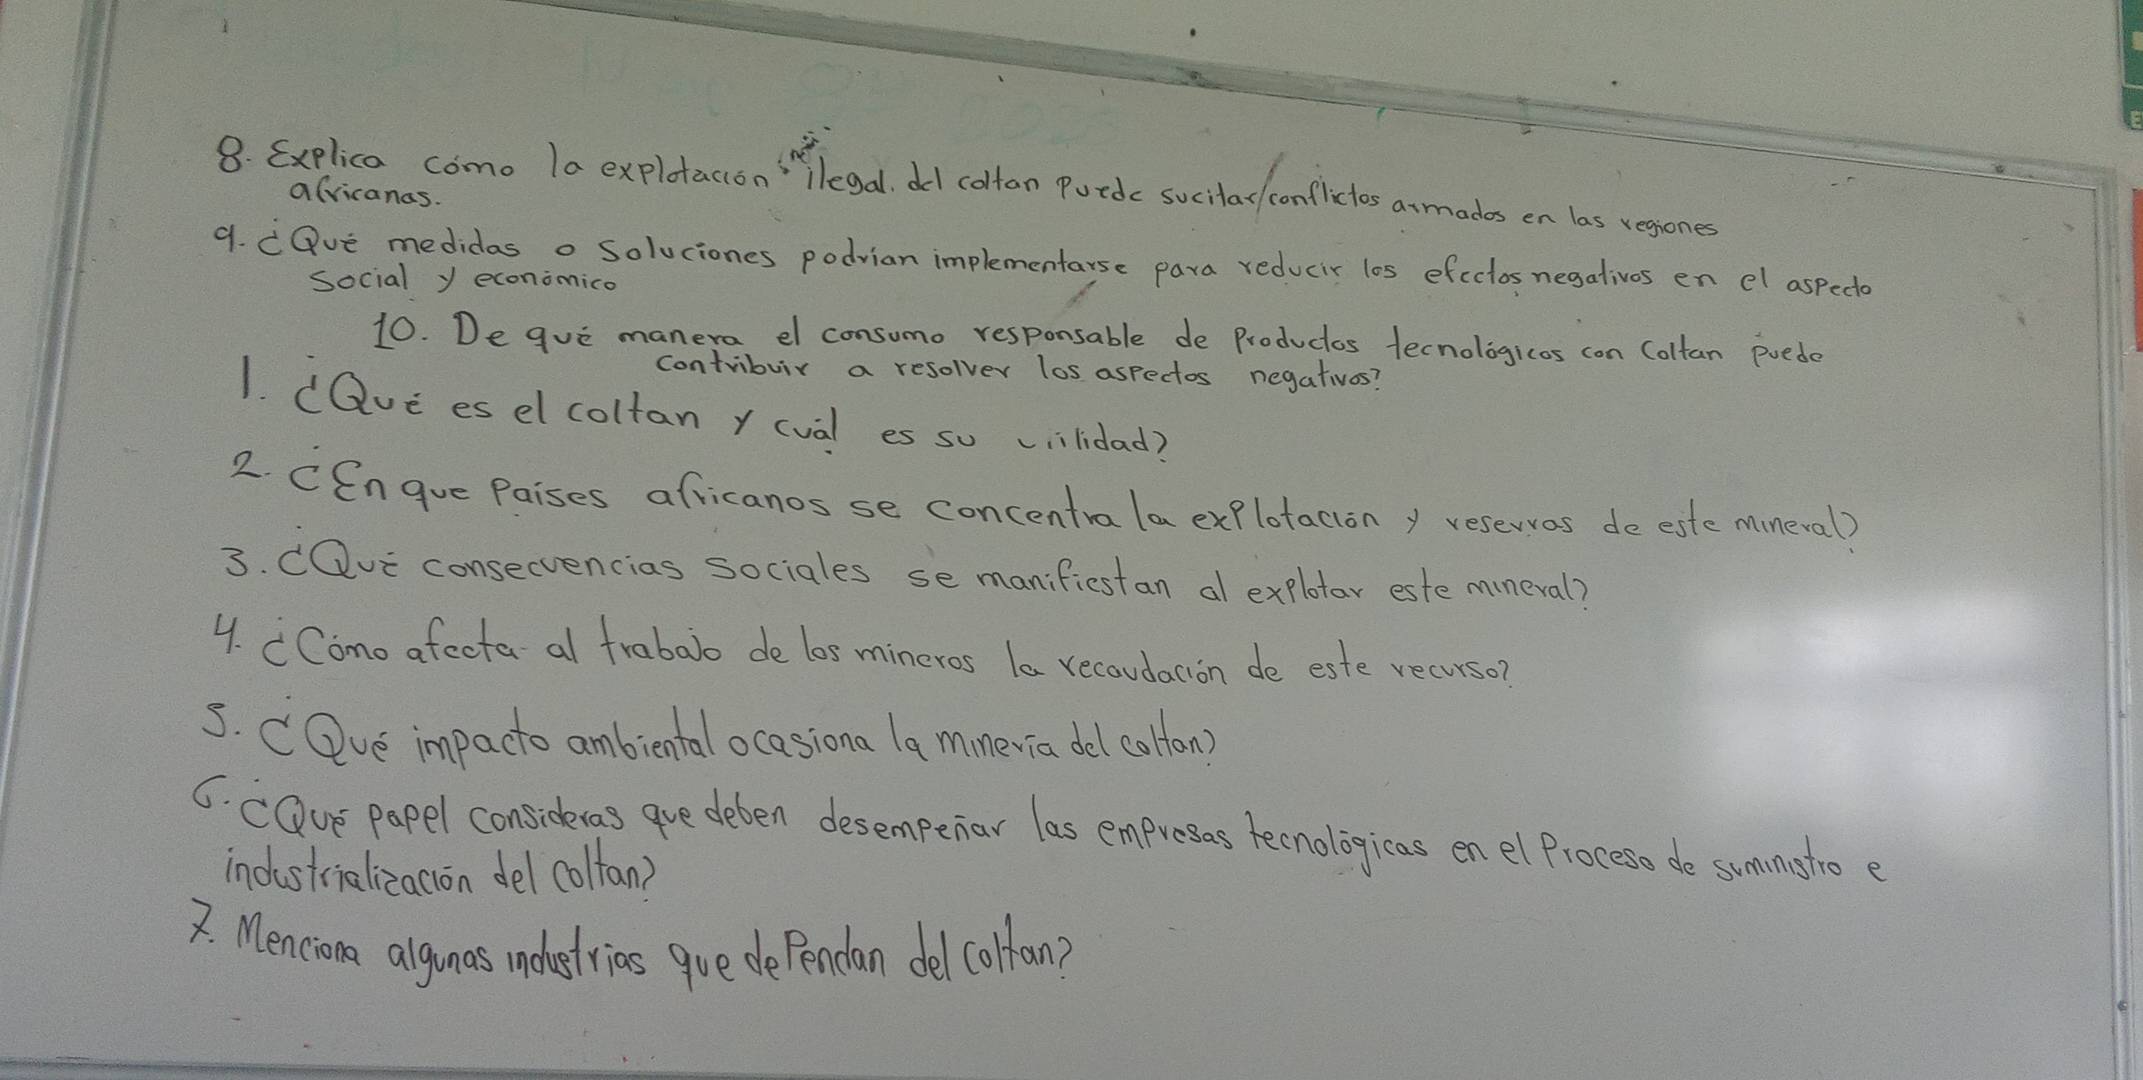 8. Explica cómo la explotación ilegal. del coltan puede sucitar/conflictos armados en las regiones
africanas.
9. ¿Qué medidas o soluciones podrían implementarse para reducir los efectos negativos en el aspecto
social y económico
10. De qué manera el consumo responsable de productos tecnológicos con Coltan puede
contribuir a resolver los aspectos negativos?
1. ¿Qué es el coltan y cuál es su utilidad?
2. ¿En que países africanos se concentra la explotación y reservas de este mineral?
3. ¿Qué consecuencias sociales se manifiestan al explotar este mineral?
4. ¿Cómo afecta al trabajo de los mineros la recaudación de este recurso?
5. ¿Qué impacto ambiental ocasiona la minería del coltan?
6. ¿Qué papel consideras que deben desempeñar las empresas tecnológicas en el proceso de suministro e
industrialización del coltan?
7. Menciona algunas industrias que dependan del coltan?